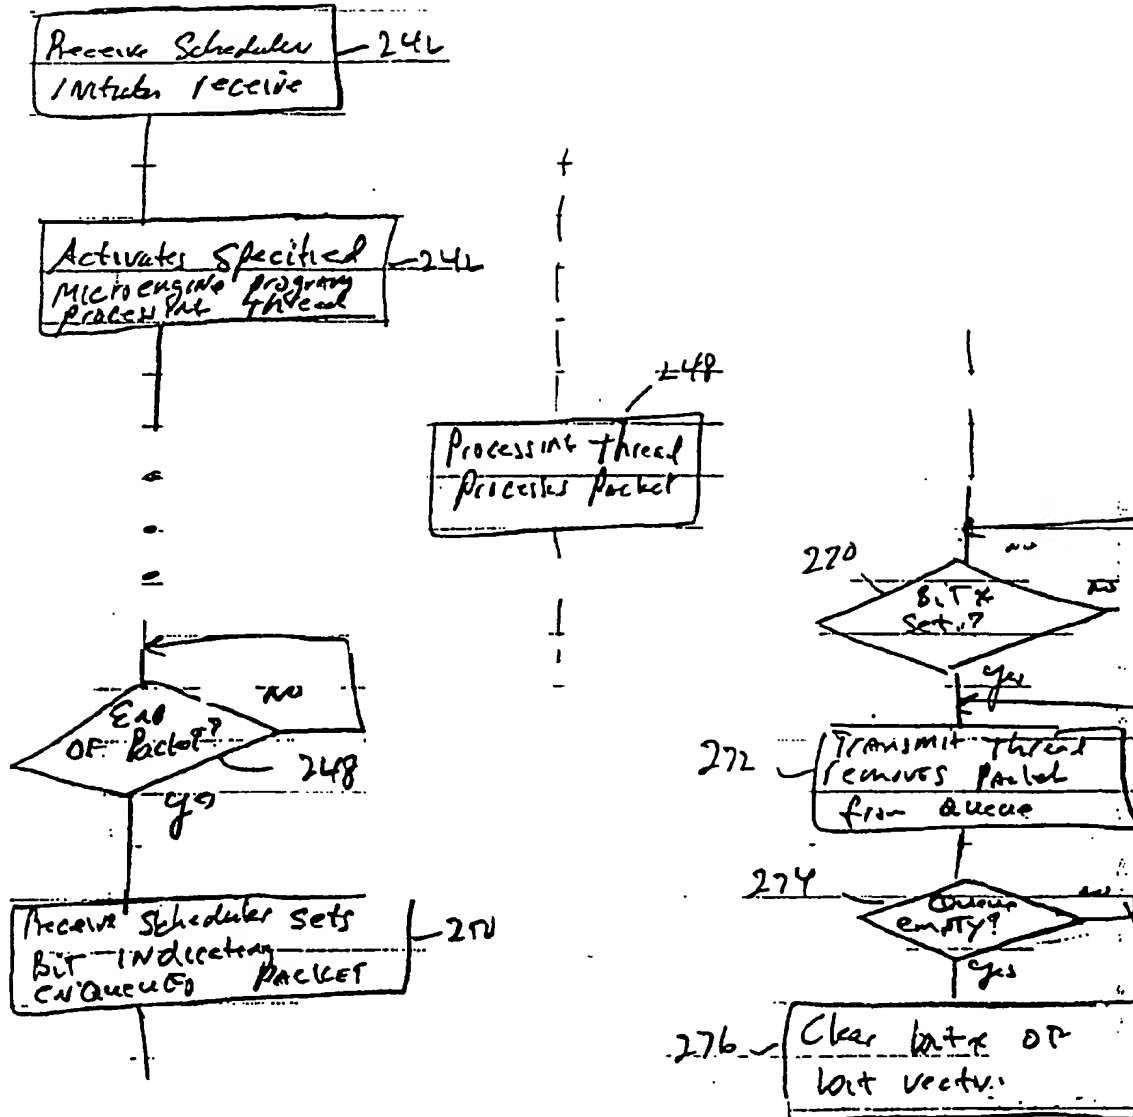 Receive Scheduler
initiates receive
242
Activates Specified
Microengine program
processing thread
242
248
Processing thread
processes packet
End
OF Packet?
NO
248
yes
Receive Scheduler sets
Bit indicating
ENQUEUED PACKET
250
NO
270
Bit x
Set?
NO
yes
272
Transmit thread
removes packet
from Queue
274
Queue
empty?
NO
yes
276
Clear bit x of
bit vector